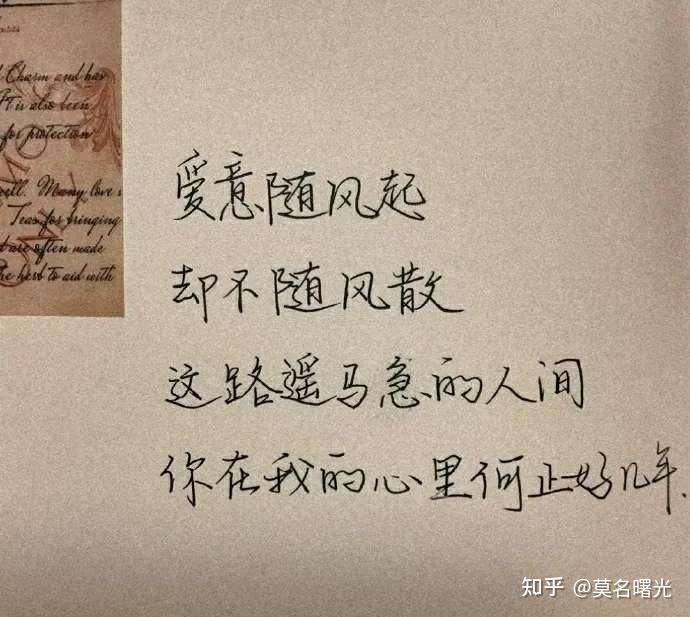 Charm and has
It is also been
for protection
well. Many love
Teas for bringing
are often made
herb to aid with
爱意随风起
却不随风散
这路遥马急的人间
你在我的心里何止好几年.
知乎 @莫名曙光